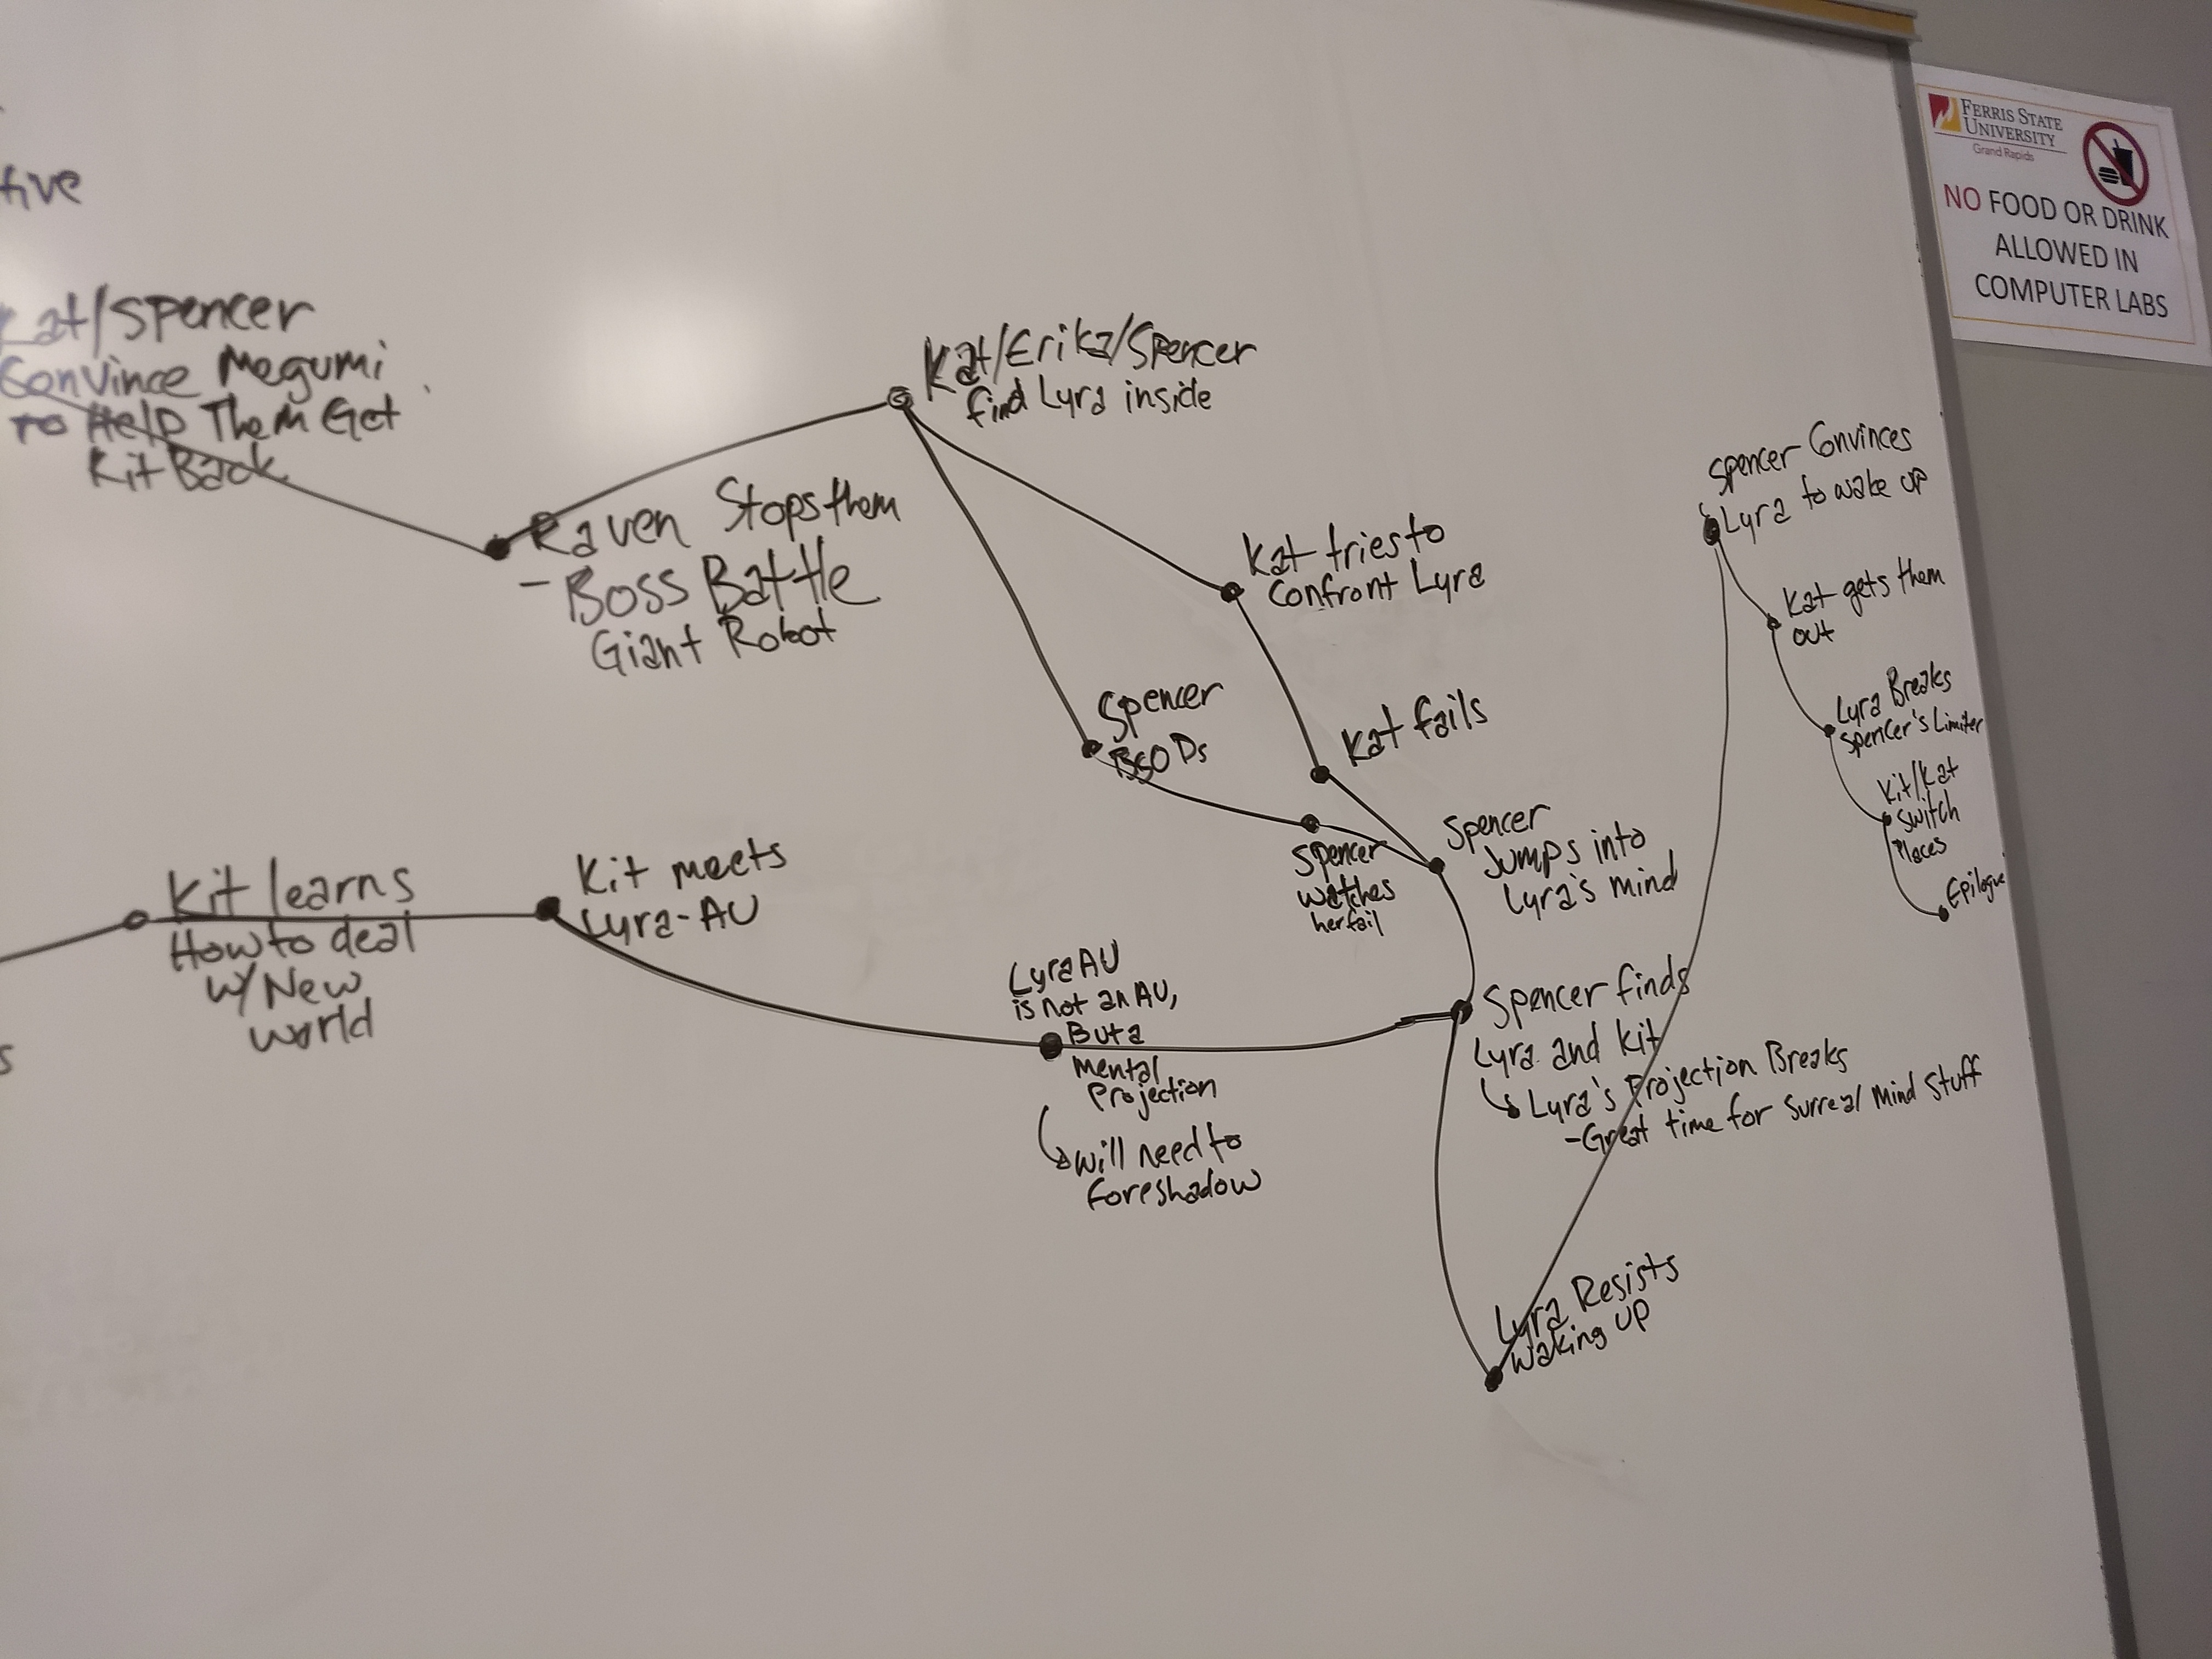 Kat/Spencer
Convince Megumi
To Help Them Get
Kit Back
Raven Stops them
- Boss Battle
Giant Robot
Kat/Erika/Spencer
find Lyra inside
Kat tries to
Confront Lyra
Kat fails
Spencer
BSODs
Spencer
watches
her fail
Spencer
Jumps into
Lyra's mind
Kit learns
How to deal
w/ New
world
Kit meets
Lyra-AU
Lyra AU
is not an AU,
But a
Mental
Projection
will need to
foreshadow
Spencer finds
Lyra and Kit
Lyra's Projection Breaks
-Great time for Surreal Mind Stuff
Lyra Resists
Waking UP
Spencer Convinces
Lyra to wake UP
Kat gets them
out
Lyra Breaks
Spencer's Limiter
Kit/Kat
Switch
Places
Epilogue
FERRIS STATE
UNIVERSITY
Grand Rapids
NO FOOD OR DRINK
ALLOWED IN
COMPUTER LABS